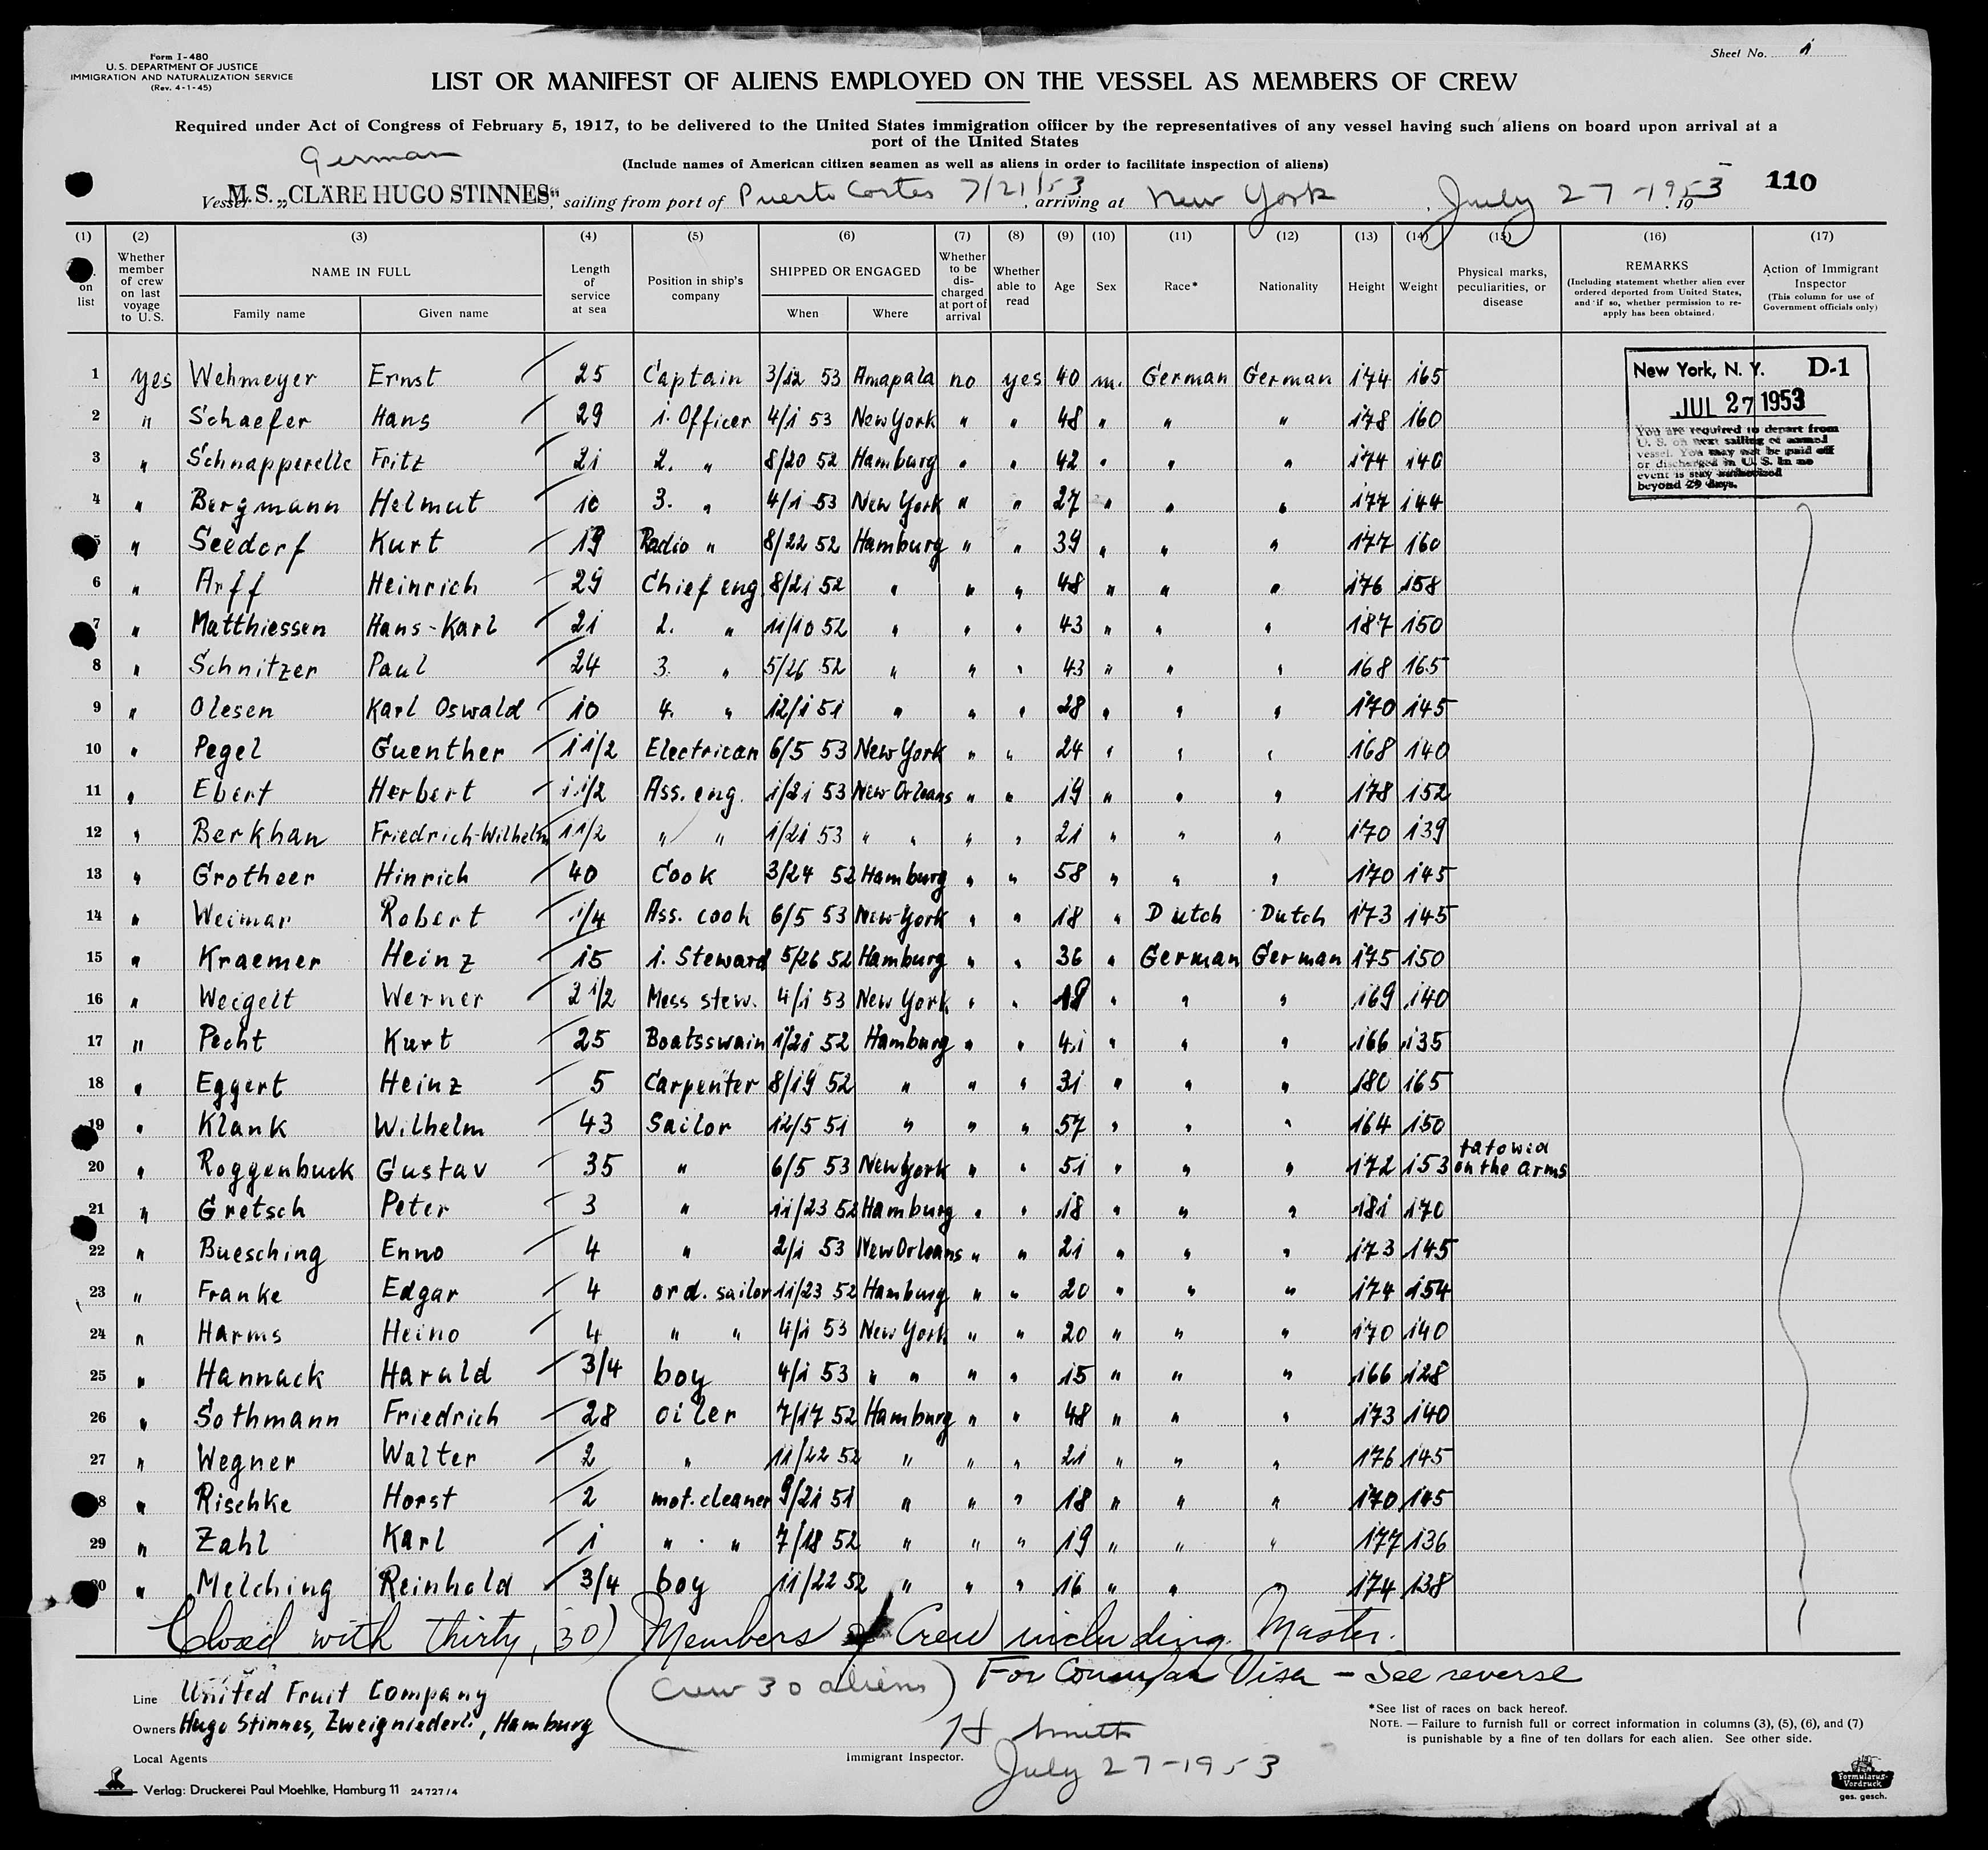 Form I-480
U. S. DEPARTMENT OF JUSTICE
IMMIGRATION AND NATURALIZATION SERVICE
(Rev. 4-1-45)
Sheet No. 1
LIST OR MANIFEST OF ALIENS EMPLOYED ON THE VESSEL AS MEMBERS OF CREW
Required under Act of Congress of February 5, 1917, to be delivered to the United States immigration officer by the representatives of any vessel having such aliens on board upon arrival at a
port of the United States
German
(Include names of American citizen seamen as well as aliens in order to facilitate inspection of aliens)
Vessel M.S. „CLÄRE HUGO STINNES“, sailing from port of Puerto Cortes 7/21/53, arriving at New York, July 27-1953 19 110
(1) (2) (3) (4) (5) (6) (7) (8) (9) (10) (11) (12) (13) (14) (15) (16) (17)
on list
Whether member of crew on last voyage to U. S.
NAME IN FULL
Family name
Given name
Length of service at sea
Position in ship's company
SHIPPED OR ENGAGED
When
Where
Whether to be discharged at port of arrival
Whether able to read
Age
Sex
Race*
Nationality
Height
Weight
Physical marks, peculiarities, or disease
REMARKS
(Including statement whether alien ever ordered deported from United States, and if so, whether permission to re-apply has been obtained.)
Action of Immigrant Inspector
(This column for use of Government officials only)
1 yes Wehmeyer Ernst 25 Captain 3/12 53 Amapala no yes 40 m. German German 174 165
2 " Schaefer Hans 29 1. Officer 4/1 53 New York " " 48 " " " 178 160
3 " Schnapperelle Fritz 21 2. " 8/20 52 Hamburg " " 42 " " " 174 140
4 " Bergmann Helmut 10 3. " 4/1 53 New York " " 27 " " " 177 144
5 " Seedorf Kurt 19 Radio " 8/22 52 Hamburg " " 39 " " " 177 160
6 " Arff Heinrich 29 Chief eng. 8/21 52 " " " 48 " " " 176 158
7 " Matthiessen Hans-Karl 21 2. " 11/10 52 " " " 43 " " " 187 150
8 " Schnitzer Paul 24 3. " 5/26 52 " " " 43 " " " 168 165
9 " Olesen Karl Oswald 10 4. " 12/1 51 " " " 28 " " " 170 145
10 " Pegel Guenther 1 1/2 Electrican 6/5 53 New York " " 24 " " " 168 140
11 " Ebert Herbert 1 1/2 Ass. eng. 1/21 53 New Orleans " " 19 " " " 178 152
12 " Berkhan Friedrich-Wilhelm 1 1/2 " " 1/21 53 " " " " 21 " " " 170 139
13 " Grotheer Hinrich 40 Cook 3/24 52 Hamburg " " 58 " " " 170 145
14 " Weimar Robert 1/4 Ass. cook 6/5 53 New York " " 18 " Dutch Dutch 173 145
15 " Kraemer Heinz 15 1. Steward 5/26 52 Hamburg " " 36 " German German 175 150
16 " Weigelt Werner 2 1/2 Mess stew. 4/1 53 New York " " 18 " " " 169 140
17 " Pecht Kurt 25 Boatsswain 1/21 52 Hamburg " " 41 " " " 166 135
18 " Eggert Heinz 5 Carpenter 8/19 52 " " " 31 " " " 180 165
19 " Klank Wilhelm 43 Sailor 12/5 51 " " " 57 " " " 164 150
20 " Roggenbuck Gustav 35 " 6/5 53 New York " " 51 " " " 172 153 tatowid on the arms
21 " Gretsch Peter 3 " 11/23 52 Hamburg " " 18 " " " 181 170
22 " Buesching Enno 4 " 2/1 53 New Orleans " " 21 " " " 173 145
23 " Franke Edgar 4 ord. sailor 11/23 52 Hamburg " " 20 " " " 174 154
24 " Harms Heino 4 " " 4/1 53 New York " " 20 " " " 170 140
25 " Hannack Harald 3/4 boy 4/1 53 " " " " 15 " " " 166 128
26 " Sothmann Friedrich 28 oiler 7/17 52 Hamburg " " 48 " " " 173 140
27 " Wegner Walter 2 " 11/22 52 " " " 21 " " " 176 145
28 " Rischke Horst 2 mot. cleaner 9/21 51 " " " 18 " " " 170 145
29 " Zahl Karl 1 " " 7/18 52 " " " 19 " " " 177 136
30 " Melching Reinhold 3/4 boy 11/22 52 " " " 16 " " " 174 138
New York, N. Y. D-1
JUL 27 1953
You are required to depart from
U. S. on next sailing of named
vessel. You may not be paid off
or discharged in U. S. In no
event is stay authorized
beyond 29 days.
Closed with thirty, 30) Members of Crew including Master.
(Crew 30 aliens) For Consular Visa - See reverse
Line United Fruit Company
Owners Hugo Stinnes, Zweigniederl., Hamburg
Local Agents
H Smith
Immigrant Inspector.
July 27-1953
*See list of races on back hereof.
NOTE. — Failure to furnish full or correct information in columns (3), (5), (6), and (7)
is punishable by a fine of ten dollars for each alien. See other side.
Verlag: Druckerei Paul Moehlke, Hamburg 11 24 727/4
Formularus-
Vordruck
ges. gesch.